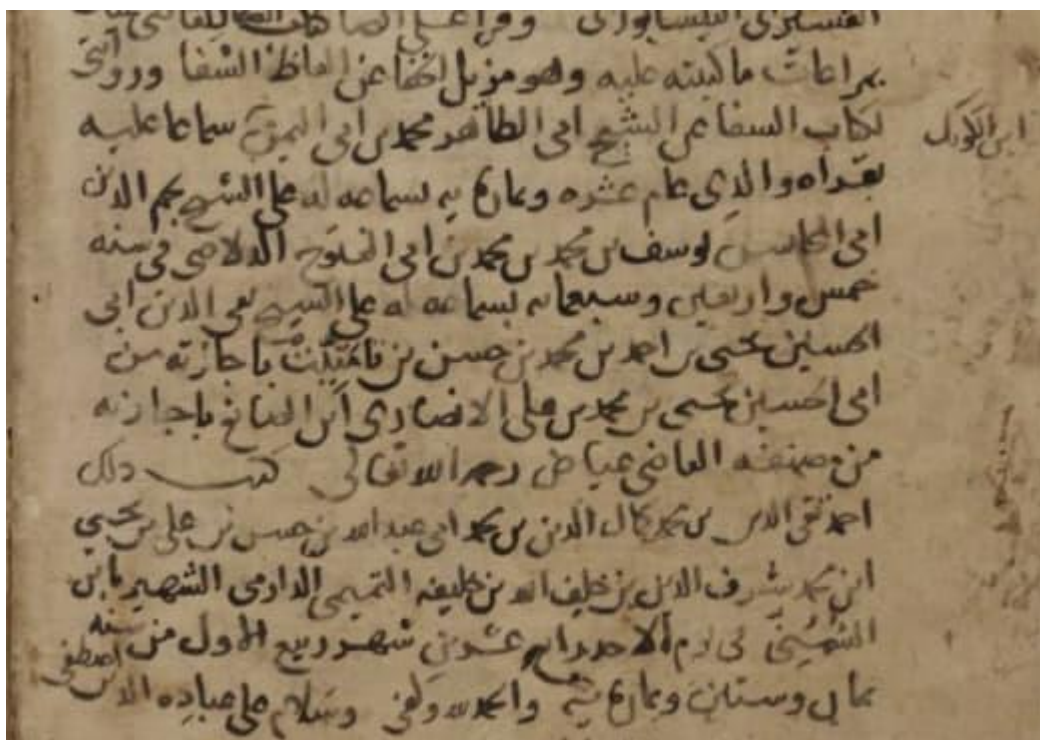 القشيري النيسابوري وقرا علي
بمراعات ما كتبته عليه وهو مزيل الخفا عن الفاظ الشفا وروايتي
لكتاب الشفا عن الشيخ ابي الطاهر محمد بن ابي اليمن سماعا عليه
بقراه والدي عام عشره وثمان مايه بسماعه له على الشيخ نجم الدين
ابي المحاسن يوسف بن محمد بن محمد بن ابي الفتوح الدلاصي في سنه
خمس واربعين وسبعمايه بسماعه له على الشيخ تقي الدين ابي
الحسين يحيى بن احمد بن محمد بن حسن بن تامتيت باجازته من
ابي الحسين يحيى بن محمد بن علي الانصاري ابن الصائغ باجازته
من مصنفه القاضي عياض رحمه الله تعالى كتب ذلك
احمد تقي الدين بن محمد كمال الدين بن محمد ابي عبد الله بن حسن بن علي بن يحيى
ابن محمد شرف الدين بن خلف الله بن خليفه التميمي الدارمي الشهير بابن
الشمني في يوم الاحد رابع عشرين شهر ربيع الاول من سنه
ثمان وستين وثمان مايه والحمد لله وكفى وسلام على عباده الذين اصطفى